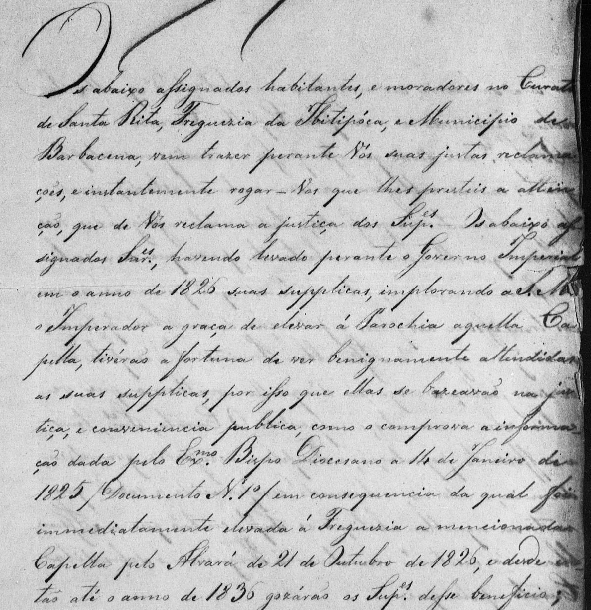 Os abaixo assignados habitantes, e moradores no Curato
de Santa Rita, Freguezia da Ibitipóca, e Municipio de
Barbacena, vem trazer perante Vós suas justas reclama-
ções, e instantemente rogar-Vos que lhes presteis a atten-
ção, que de Vós reclama a justiça dos Sup.es Os abaixo as-
signados Snr.es, havendo levado perante o Governo Imperial
em o anno de 1826 suas supplicas, implorando a S. M.
o Imperador a graça de elevar á Parochia aquella Ca-
pella, tivérão a fortuna de ver benignamente attendidas
as suas supplicas, por isso que ellas se bazeavão na jus-
tiça, e conveniencia publica, como o comprova a informa-
ção dada pelo Ex.mo Bispo Diocesano a 14 de Janeiro de
1825 /Documento N.1º/ em consequencia da qual foi
immediatamente elevada á Freguezia a mencionada
Capella pelo Alvará de 21 de Outubro de 1826, e desde en-
tão até o anno de 1836 gozárão os Sup.es desse beneficio;